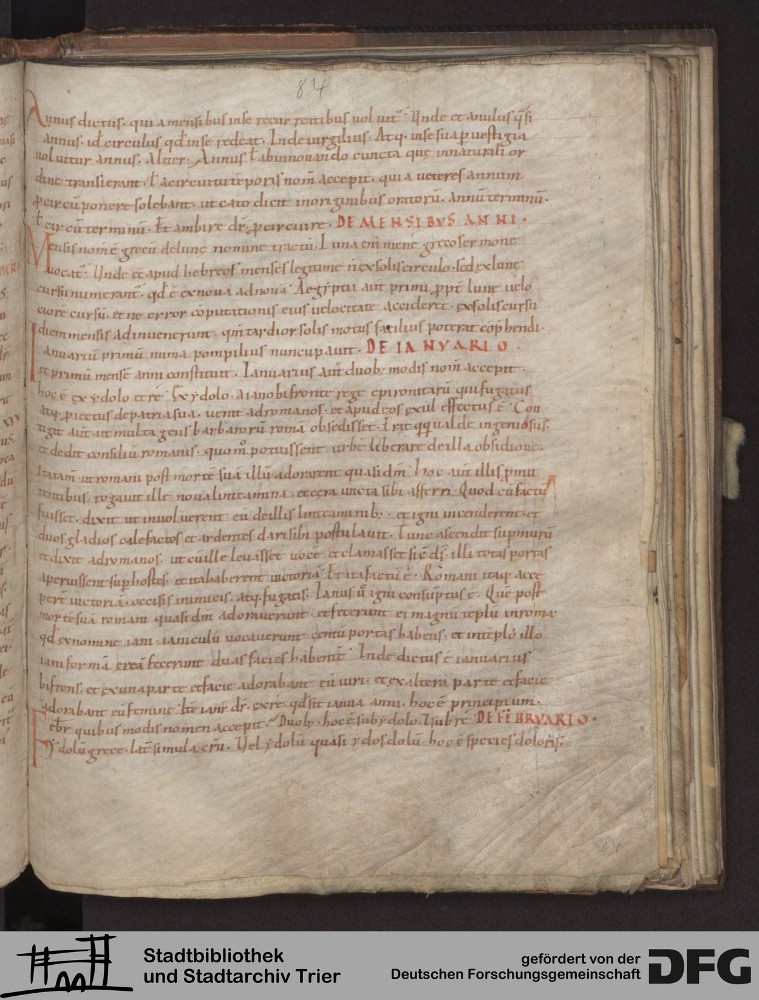 84
Annus dictus · qui a mensibus in se recurrentibus voluitᷓ · Unde et anulus q̄si
annus · id circulus qd̄ in se redeat · Inde uirgilius · Atq; in se sua p uestigia
uoluitur annus · Aliter · Annus ł ab innouando cuncta quę in naturali or
dine transierant · ł a circuitu tēporis nom̄ accepit · quia ueteres annum
p circū ponere solebant · ut cato dicit in originibus oratorū · annū terminum ·
ł circū terminū · Et ambire dr̄ · p circuire · DE MENSIBUS ANNI ·
Mensis nom̄ ē grecū de lunę nomine tractū · Luna eni mene greco sermone
uocatᷓ · Unde et apud hebreos menses legitime n̄ ex solis circulo · sed ex lunę
cursu numerantᷓ · qd̄ ē ex noua ad nouā · Aegyptii aut̄ primi ppt̄ lunę uelo
ciorē cursū · et ne error cōputationis eius uelocitate accideret · ex solis cursu
diem mensis adinuenerunt · qm̄ tardior solis motus facilius poterat cōphendi ·
Ianuariū primū numa pompilius nuncupauit · DE IANUARIO ·
et primū mensē anni constituit · Ianuarius aut̄ duob; modis nom̄ accepit ·
hoc ē ex ydolo et re · Ex ydolo · a iano bifronte rege epirotarū qui fugatus
atq; piectus de patria sua · uenit ad romanos · et apud eos exul effectus ē · Con
tigit aut̄ ut multa gens barbarorū romā obsedisset ·
et dedit consiliū romanis · quom̊ potuissent urbē liberare de illa obsidione ·
Itatam̄ ut romani post mortē suā illū adorarent quasi dm̄ · hoc aut̄ illis pmit
tentibus · rogauit ille noua linteamina · et cera uncta sibi afferri · Quod cū factū
fuisset · dixit ut inuoluerent eū de illis linteaminib; · et igni incenderent · et
duos gladios calefactos et ardentes dari sibi postulauit · Tunc ascendit sup murū
et dixit ad romanos · ut cū ille leuasset uocē · et clamasset sic ds̄ · illi totas portas
aperuissent sup hostes · et ita haberent uictoriā · Et ita factū ē · Romani itaq; acce
perē uictoriā · occisis inimicis · atq; fugatis · Ianus ů igni consuptus ē · Quē post
mortē suā romani quasi dm̄ adorauerunt · et fecerunt ei magnū teplū in roma
qd̄ ex nomine iani · ianiculū uocauerunt · centū portas habens · et in teplo illo
iani formā ereā fecerunt duas facies habentē · Inde dictus ē ianuarius
bifrons · et ex una parte et facie adorabant eū uiri · et ex altera parte et facie
adorabant eū feminę · ianr̄ dr̄ · ex re · qd̄ sit ianua anni · hoc ē principium ·
Febr̄ quibus modis nomen accepit · Duob; · hoc ē sub ydolo · ł sub rē · DE FEBRUARIO ·
Ydolū grece · latē simulacrū · Uel ydolū quasi ydos dolū · hoc ē species doloris ·
84
Stadtbibliothek
und Stadtarchiv Trier
gefördert von der
Deutschen Forschungsgemeinschaft
DFG